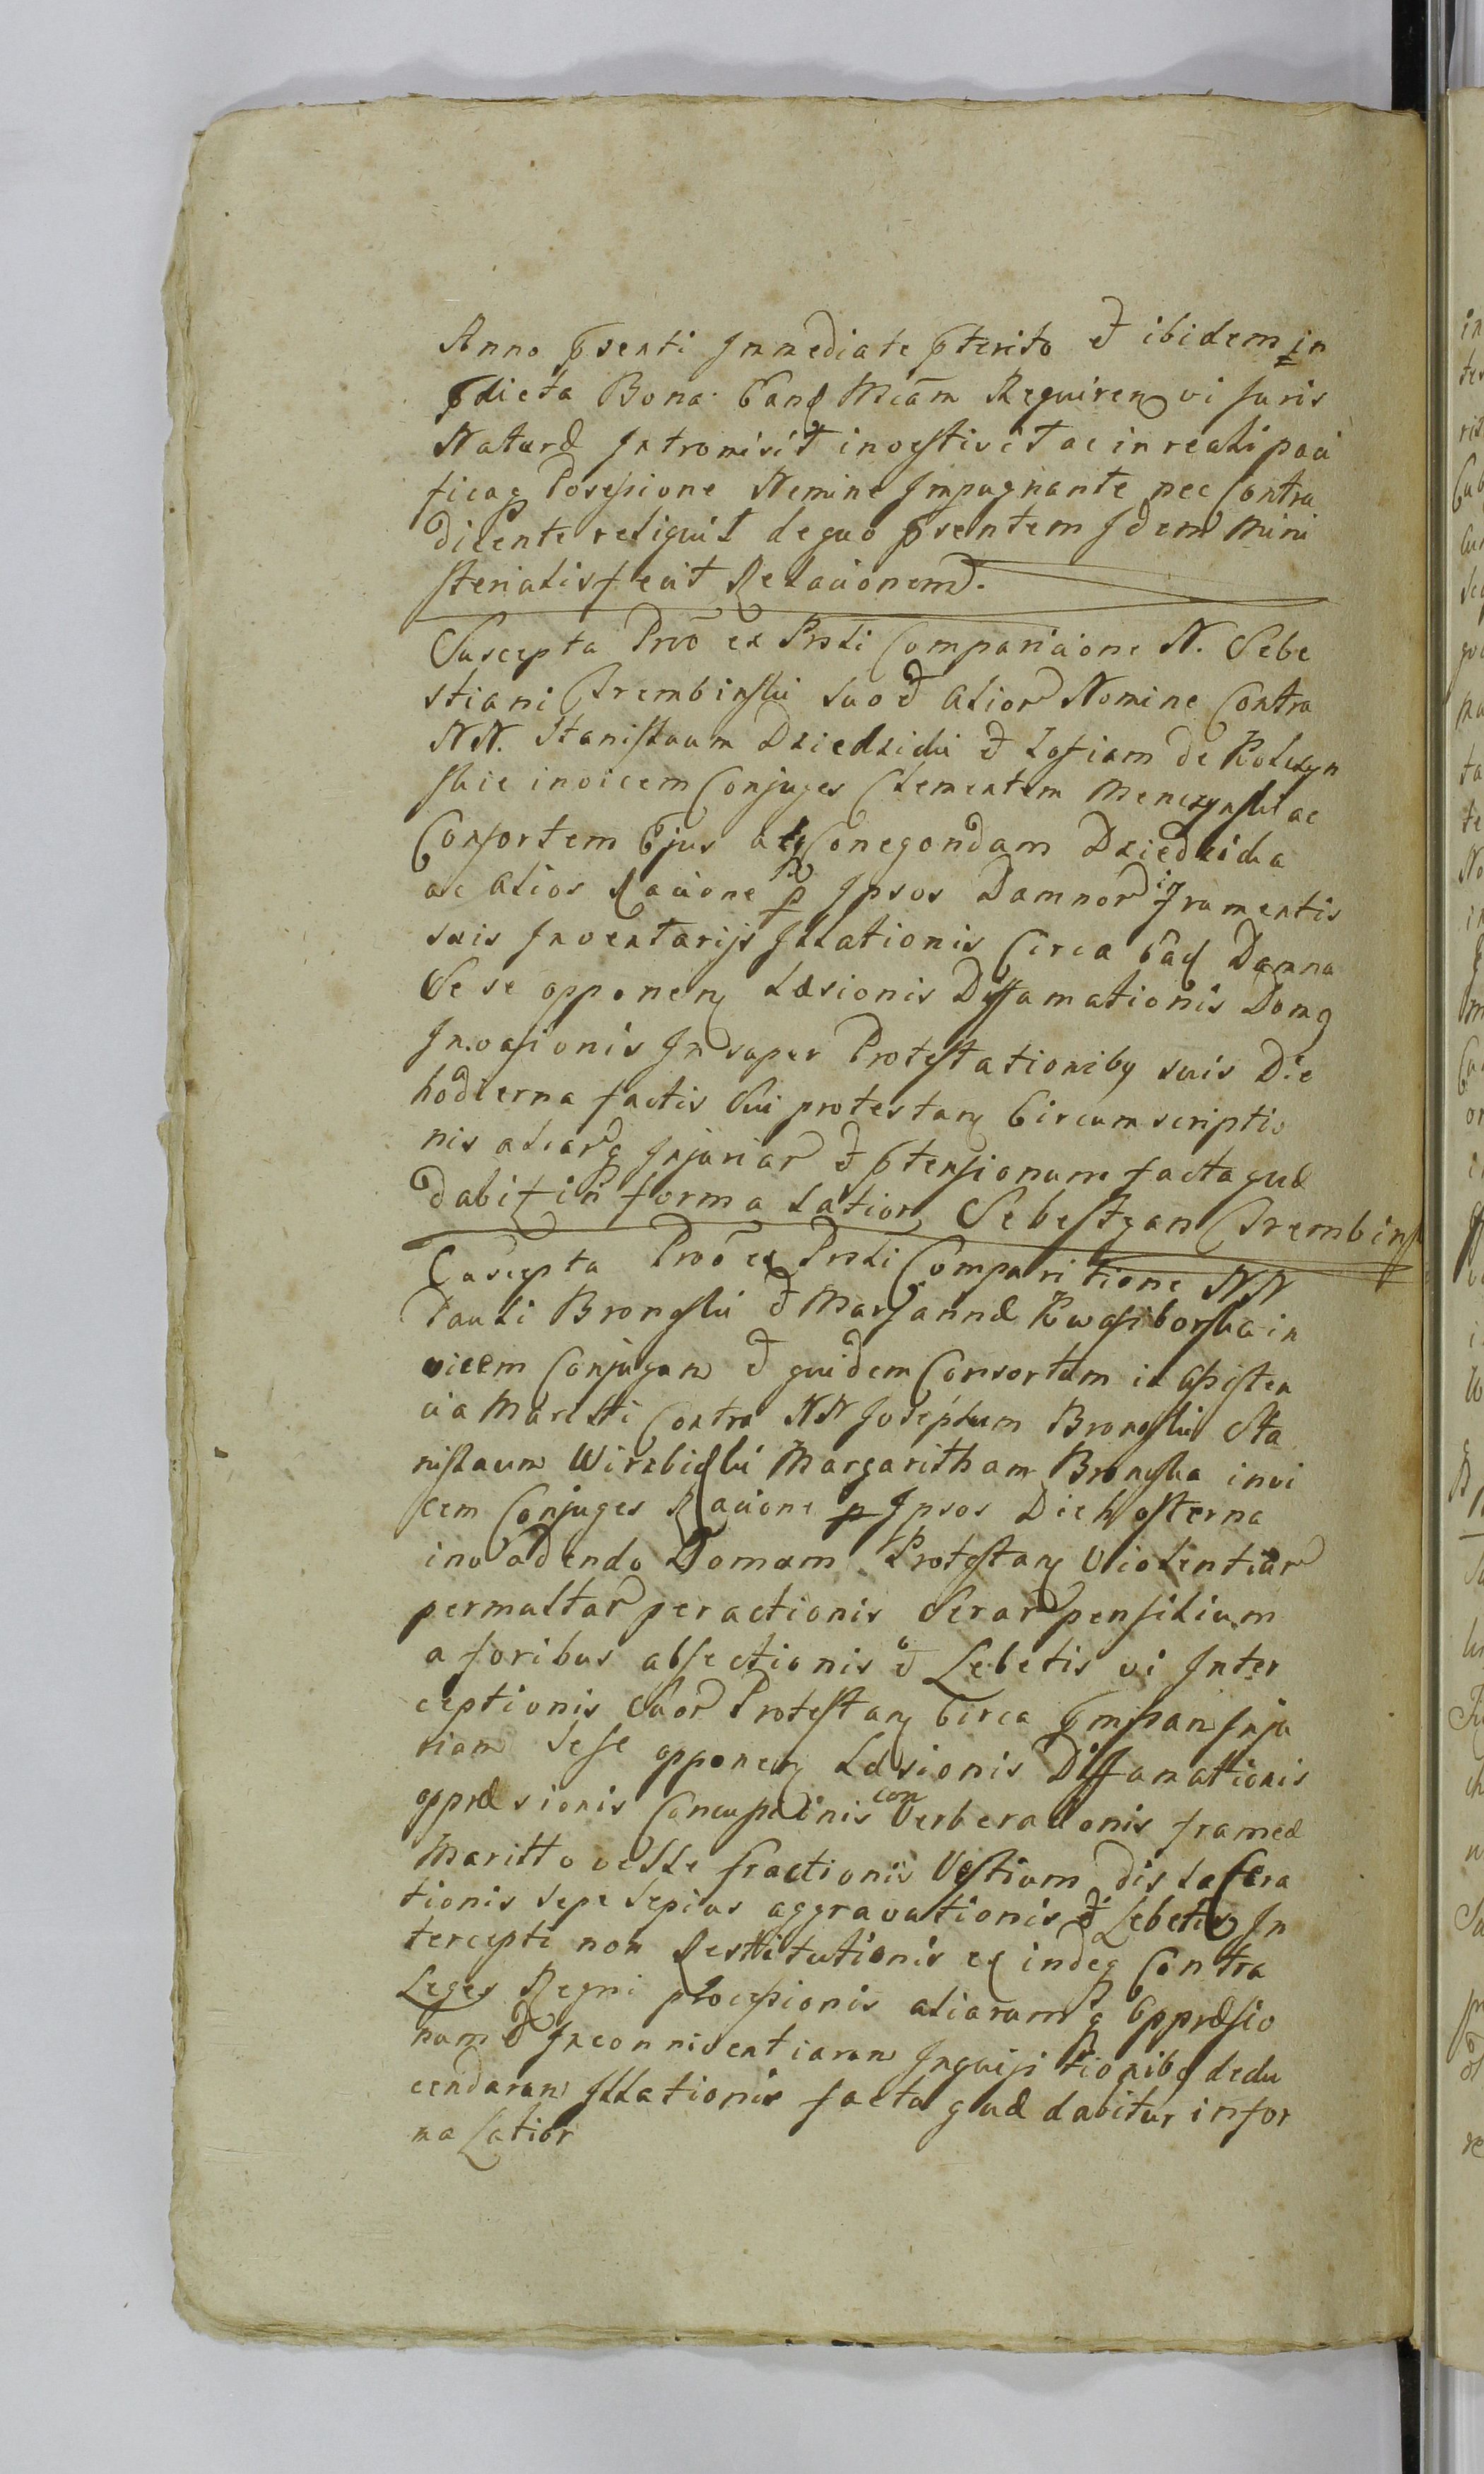 Anno pſenti Immediate pterito et ibidem in
pdicta Bona Eandq Mcam Requiren vi Juris
Naturæ Intromisit investivit ac in reali paci
ficaq Posesſione Nemine Impugnante nec Contra
dicente reliquit de quo pſentem Idem Mini
sterialis fecit Relacionem.
Suscepta Prvo ex Prsli Comparicione N. Sebe
stiani Trembinſki suo et alior Nomine Contra
NN. Staniſlaum Dziedzicki et Zofiam de Kolczyn
ſkie invicem Conjuges Clementem Menczynſki ac
Conſortem Ejus atq Conegondam Dziedzicka
ac alios Racione p Ipsos Damnor in Frumentis
suis Inventarijs Illationis Circa Eaq Damna
Se se opponen Læsionis Diffamationis Domq
Invaſionis Insuper Proteſtationibq suis Die
hodierna factis Sui protestan Circumscriptio
nis aliarq Injuriar et ptenſionum facta quæ
dabit in forma Latiori Sebeſtyan Trembinſk
Suscepta Prvo ex Prsli Comparitione NN
Pauli Bronſki et Maryannæ Kwaſiborſka in
vicem Conjugan et quidem Consortem in Aſſiſten
cia Mariti Contra NN Josephum Bronſki Sta
niſlaum Wirzbicki Margaritham Bronſka invi
cem Conjuges Racione p Ipsos Die hesterna
invadendo Domum Proteſtan Violentiar
permultar peractionis Serar penſilium
a foribus abſectionis et Lebetis vi Inter
ceptionis Suor Proteſtan Circa pmiſſan Inju
riam Seſe opponen Læsionis Diffamationis
oppræsionis Concuſſionis con Verberacionis frameæ
Maritto velle fractionis Veſtium dislacera
tionis sepe sepius aggravationis et Lebetis In
tercepti non Resttitutionis ex indeq Contra
Leges Regni processionis aliarumq Oppræſio
num et Inconnisentiarum Inquiſitionibq dedu
cendarum Illationis facta quæ dabitur in for
ma Latior